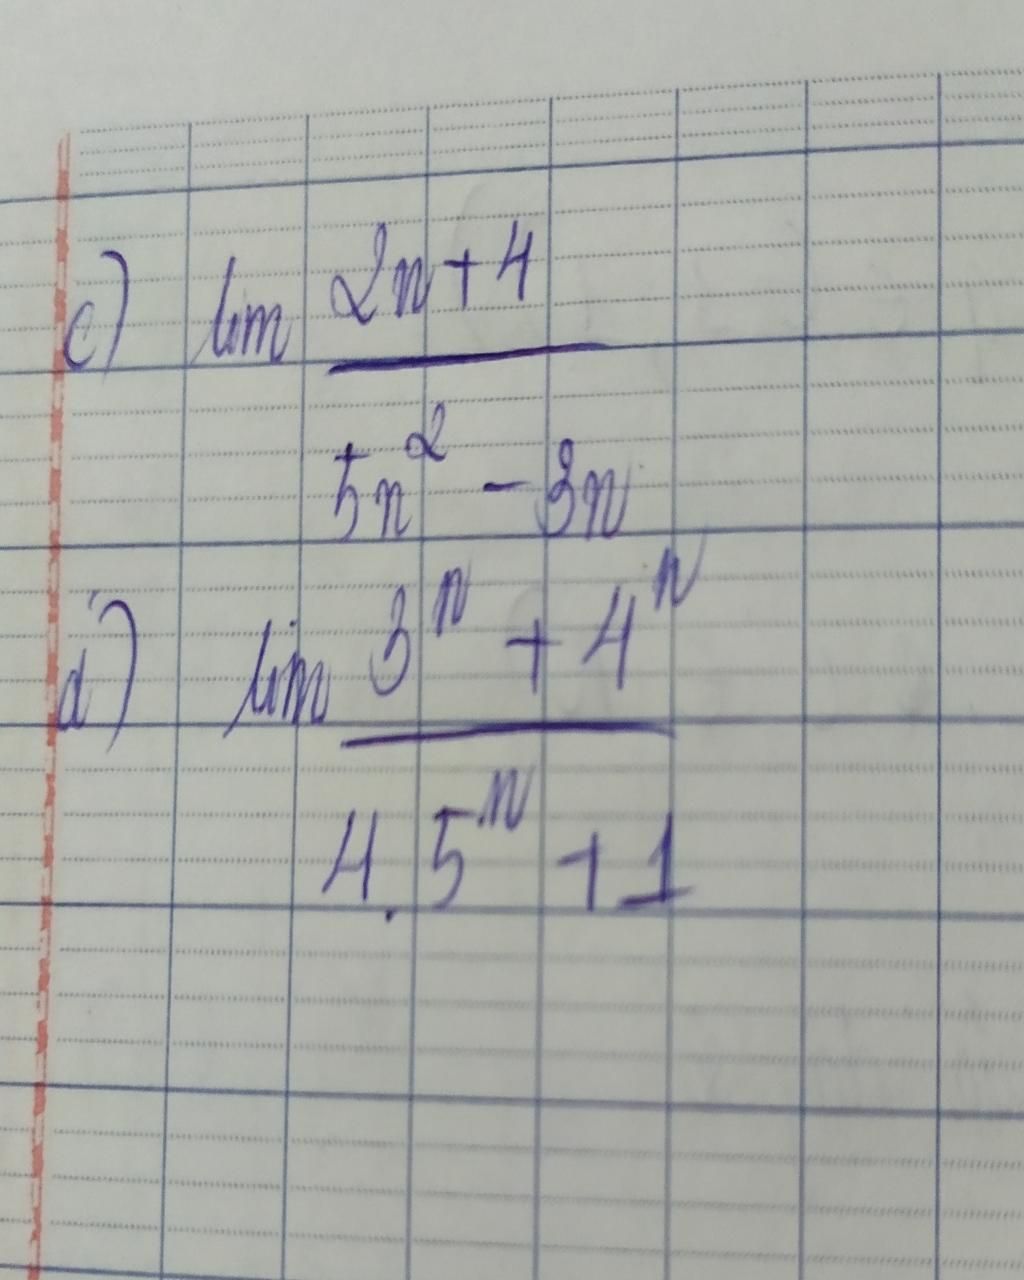 c) lim 2n + 4
5n² - 3n
d) lim 3ⁿ + 4ⁿ
4.5ⁿ + 1